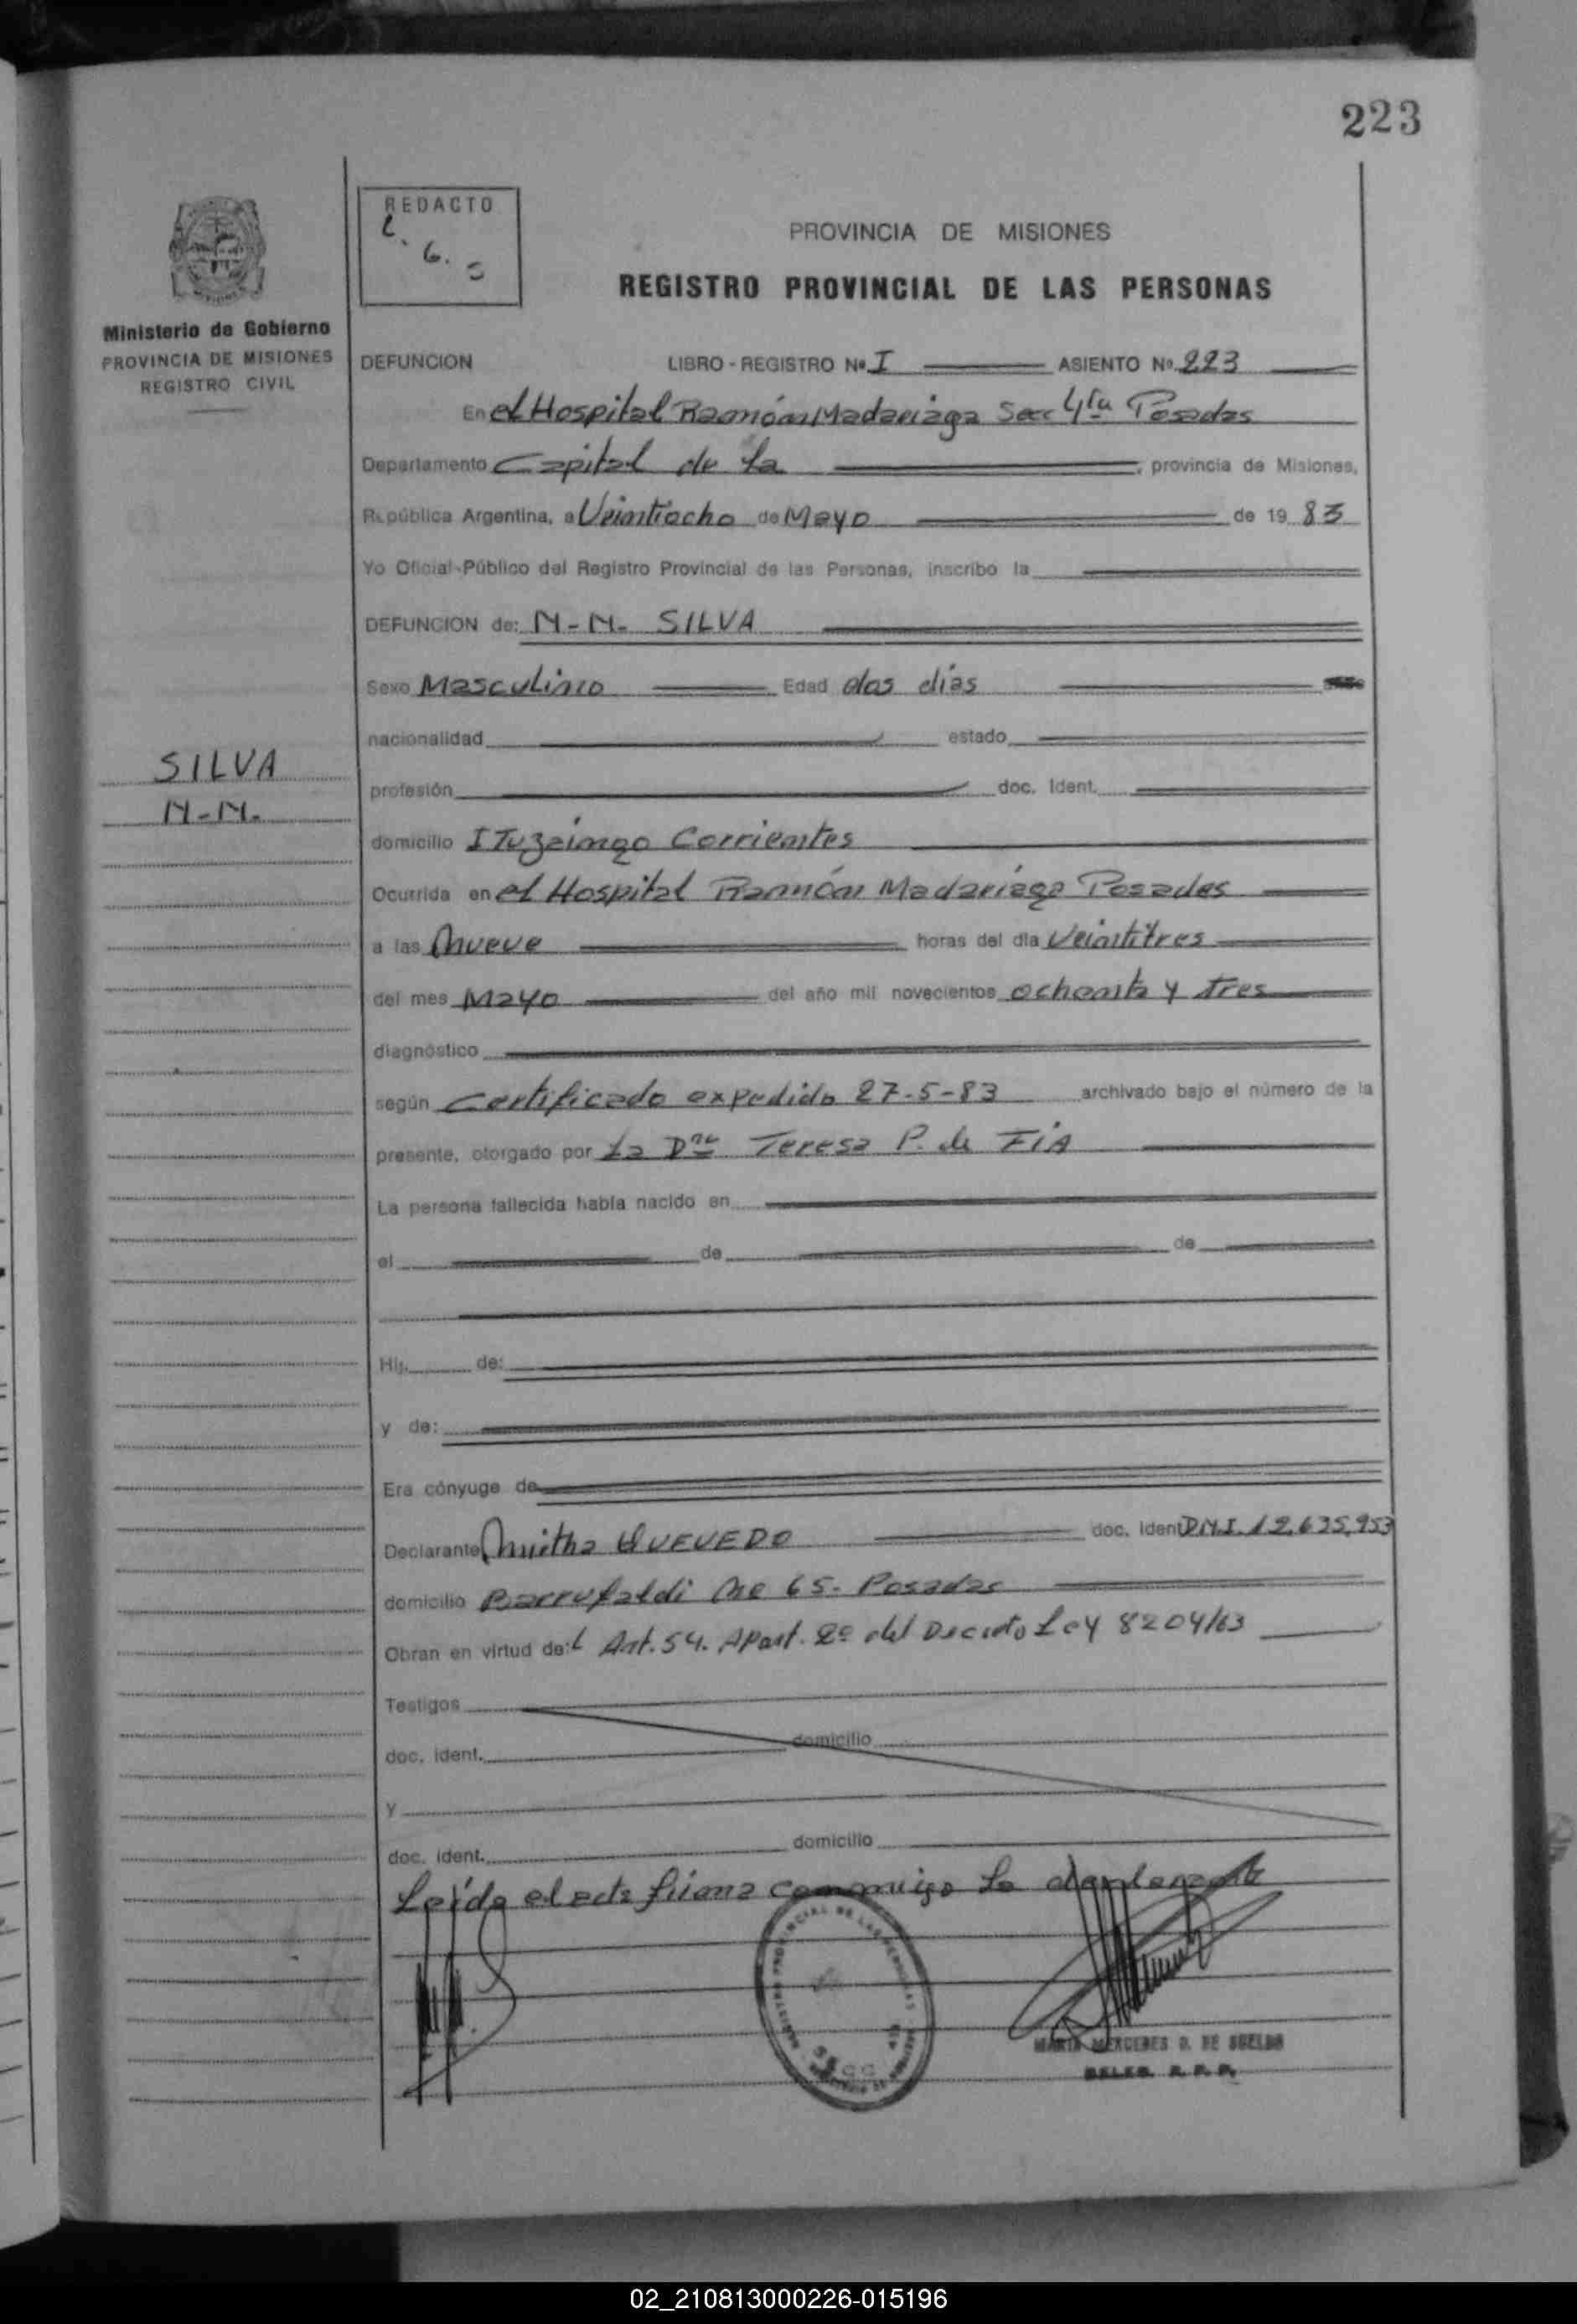 223
REDACTO
PROVINCIA DE MISIONES
REGISTRO PROVINCIAL DE LAS PERSONAS
Ministerio de Gobierno
PROVINCIA DE MISIONES
REGISTRO CIVIL
DEFUNCION LIBRO - REGISTRO Nº I ASIENTO Nº 223
En el Hospital Ramón Madariaga Sec 4ta Posadas
Departamento Capital de la , provincia de Misiones,
República Argentina, a Veintiocho de Mayo de 19 83
Yo Oficial Público del Registro Provincial de las Personas, inscribo la
DEFUNCION de: N-N- SILVA
Sexo Masculino Edad dos dias
nacionalidad estado
SILVA
N-N.
profesión doc. Ident.
domicilio ITuzaingo Corrientes
Ocurrida en el Hospital Ramón Madariaga Posadas
a las nueve horas del día Veintitres
del mes Mayo del año mil novecientos ochenta y tres
diagnóstico
según Certificado expedido 27-5-83 archivado bajo el número de la
presente, otorgado por La Dra Teresa P. de FIA
La persona fallecida había nacido en
el de de
Hij de:
y de:
Era cónyuge de
Declarante QUEVEDO doc. Ident D.N.I. 12.635.953
domicilio Barrufaldi 65- Posadas
Obran en virtud de:l Art. 54. Apart. 2º del Decreto Ley 8204/63
Testigos
doc. ident. domicilio
y
doc. ident. domicilio
Leída el acta firma conmigo la declarante
MARIA MERCEDES
R. P. P.
02_210813000226-015196